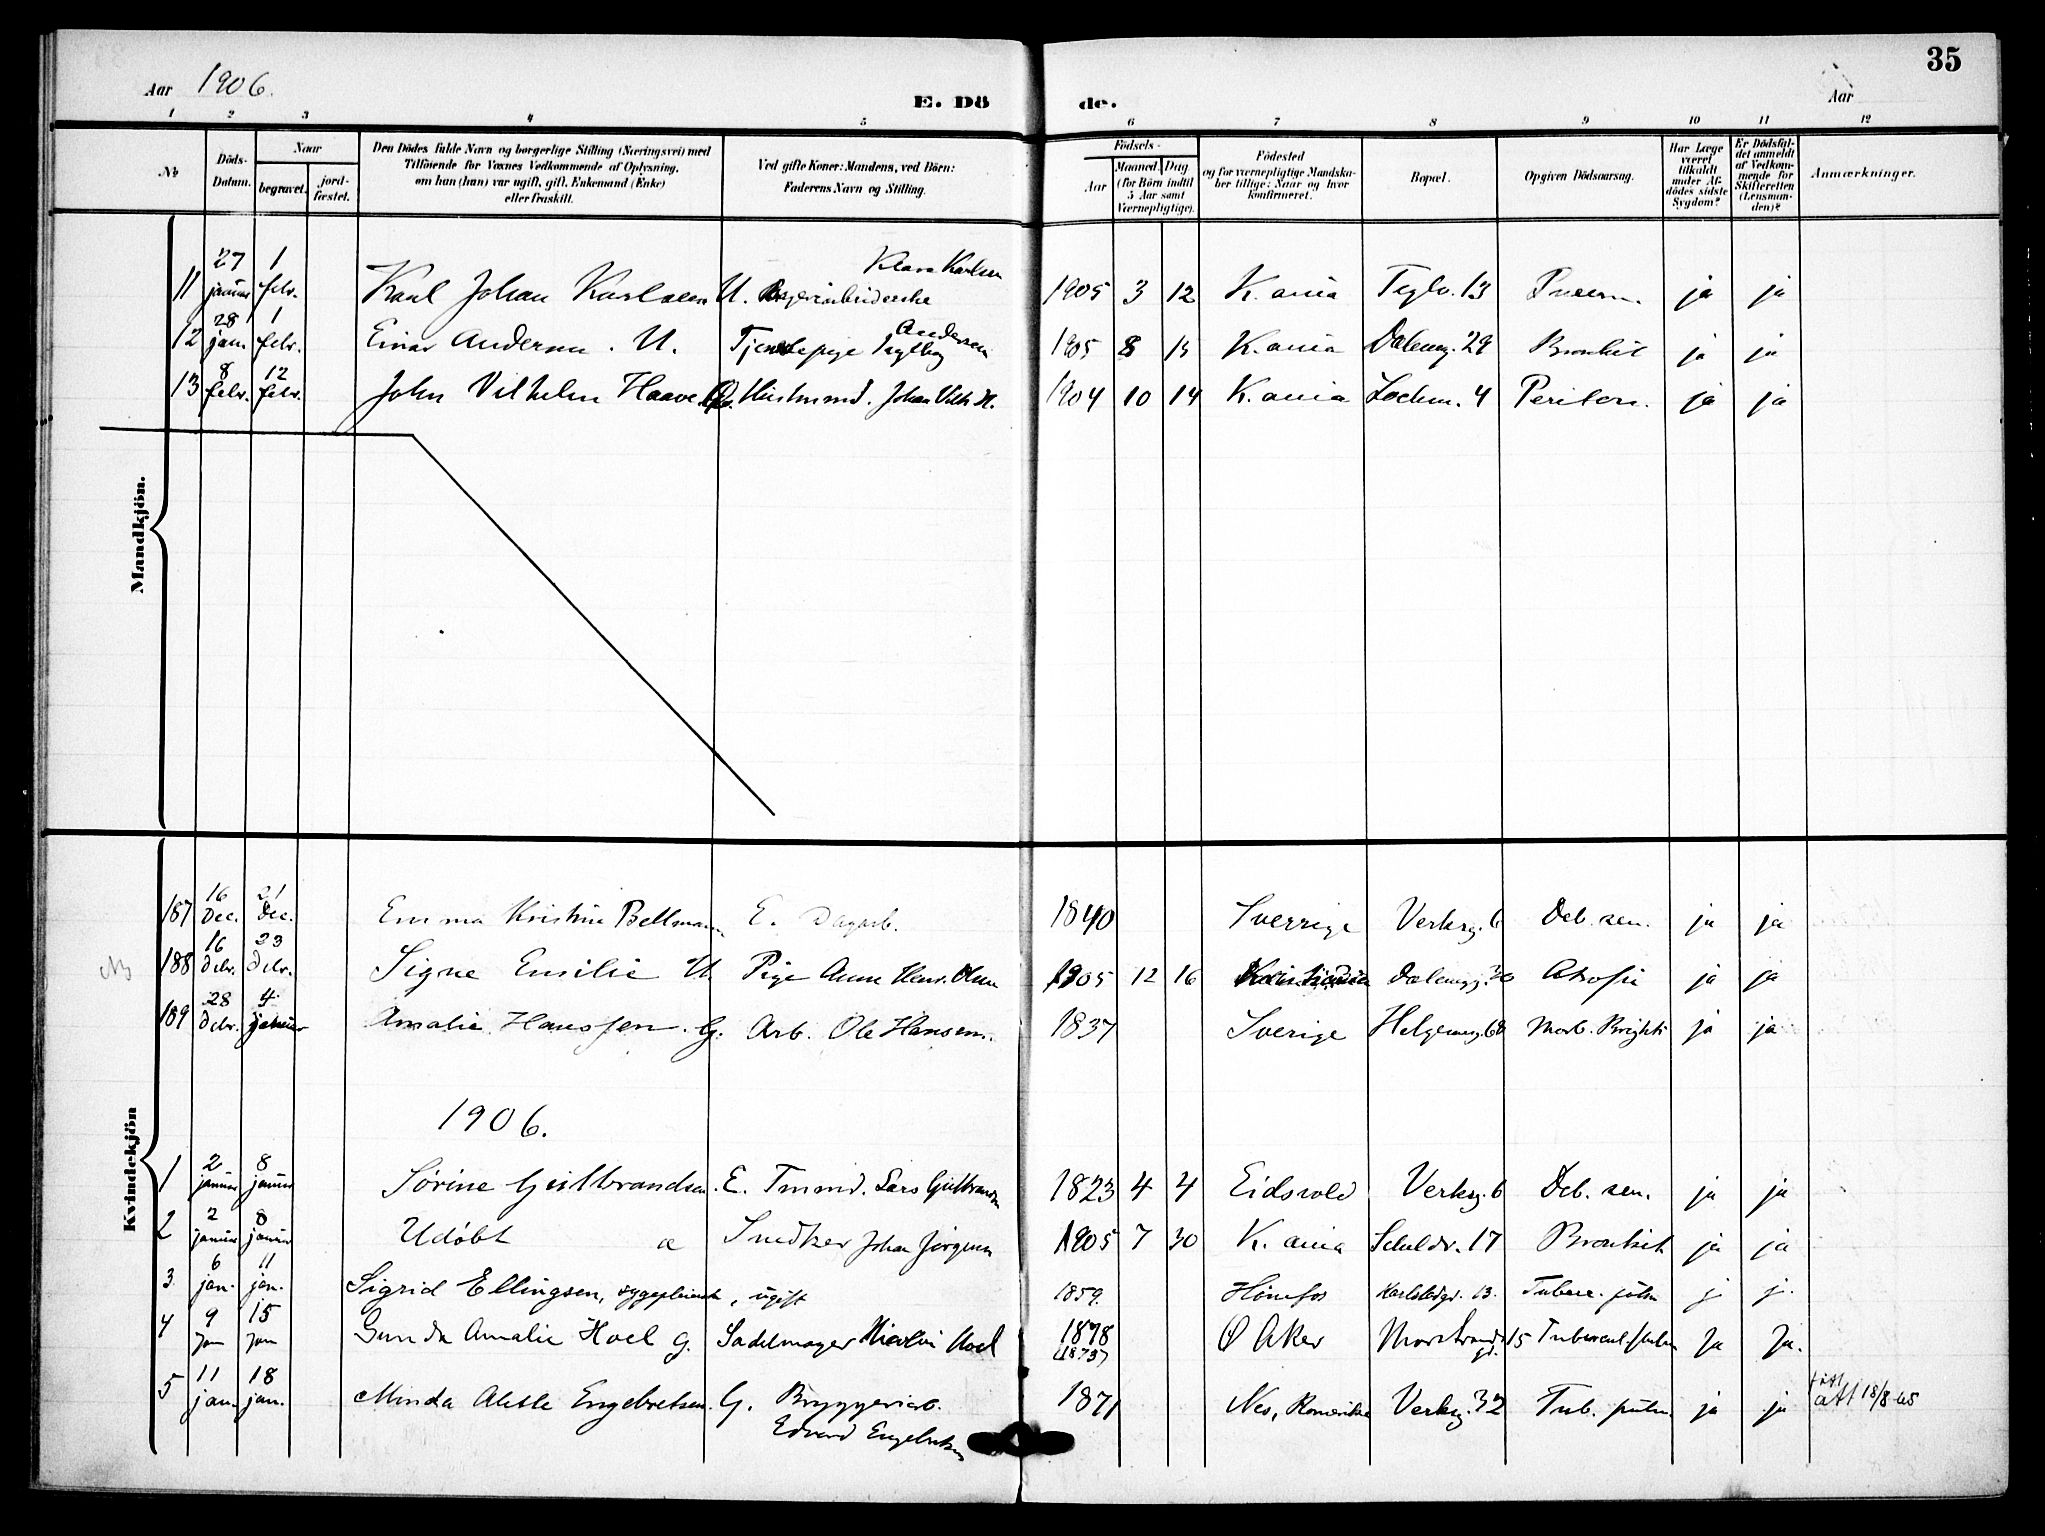 35
Aar 1906.
E. Dö de.
Aar
1 2 3 4 5 6 7 8 9 10 11 12
№
Döds-Datum.
Naar
begravet.
jord-fæstet.
Den Dödes fulde Navn og borgerlige Stilling (Næringsvei) med
Tilföiende for Voxnes Vedkommende af Oplysning,
om han (hun) var ugift, gift, Enkemand (Enke)
eller fraskilt.
Ved gifte Koner: Mandens, ved Börn:
Faderens Navn og Stilling.
Födsels-
Aar
Maaned Dag
(for Börn indtil
5 Aar samt
Værnepligtige).
Födested
og for værnepligtige Mandska-
ber tillige: Naar og hvor
konfirmeret.
Bopæl.
Opgiven Dödsaarsag.
Har Læge
været
tilkaldt
under Af-
dödes sidste
Sygdom?
Er Dödsfal-
det anmeldt
af Vedkom-
mende for
Skifteretten
(Lensman-
den)?
Anmærkninger.
Mandkjön.
11 27 januar 1 febr. Karl Johan Karlsen U. Klara Karlsen 1905 3 12 K.ania Teglv. 13 Pneum. ja ja
12 28 jan. 1 febr. Einar Andersen. U. Tjenestepige Ingeborg Andersen 1905 8 K.ania Daleng. 29 Bronkit ja ja
13 8 febr. 12 febr. John Vilhelm Haave Johan Vilh H. 1904 10 14 K.ania 4 Periton. ja ja
Kvindekjön
187 16 Dec. 21 Dec. Emma Kristine Bellmann E. Dagarb. 1840 Sverrige Verksg. 6 Deb. sen. ja ja
188 16 debr. 23 debr. Signe Emilie U Pige Anne Henr. Olsen 1905 12 16 Kristiania Dalengg. 30 Atrofi ja ja
189 28 debr. 4 januar Amalie Hanssen. G. Arb. Ole Hansen. 1837 Sverige Helgesensg. 68 Morb. Brighti ja ja
1906.
1 2 januar 8 januar Sørine Gulbrandsen. E. Tmmd. Lars Gulbrandsen 1823 4 4 Eidsvold Verksg. 6 Deb. sen. ja ja
2 2 januar 8 januar Udøbt a Snedker Johan Jørgensen 1905 7 30 K. ania 17 Bronkit ja ja
3 6 jan. 11 jan. Sigrid Ellingsen, sygepleierske, ugift 1859. Hønefos Karlstadgd. 13. Tuberc. pulm j j.
4 9 jan 15 jan Gunda Amalie Hoel g. Sadelmager Nicolai Hoel 1878 (1873) Ø Aker 15 Tubercul. pulm Ja Ja.
5 11 jan. 18 jan. Minda Alette Engebretsen. G. Bryggeriarb.
Edvard Engebretsen 1871 Nes, Romerike Verksg. 32 Tub. pulm. ja ja att 18/8-65